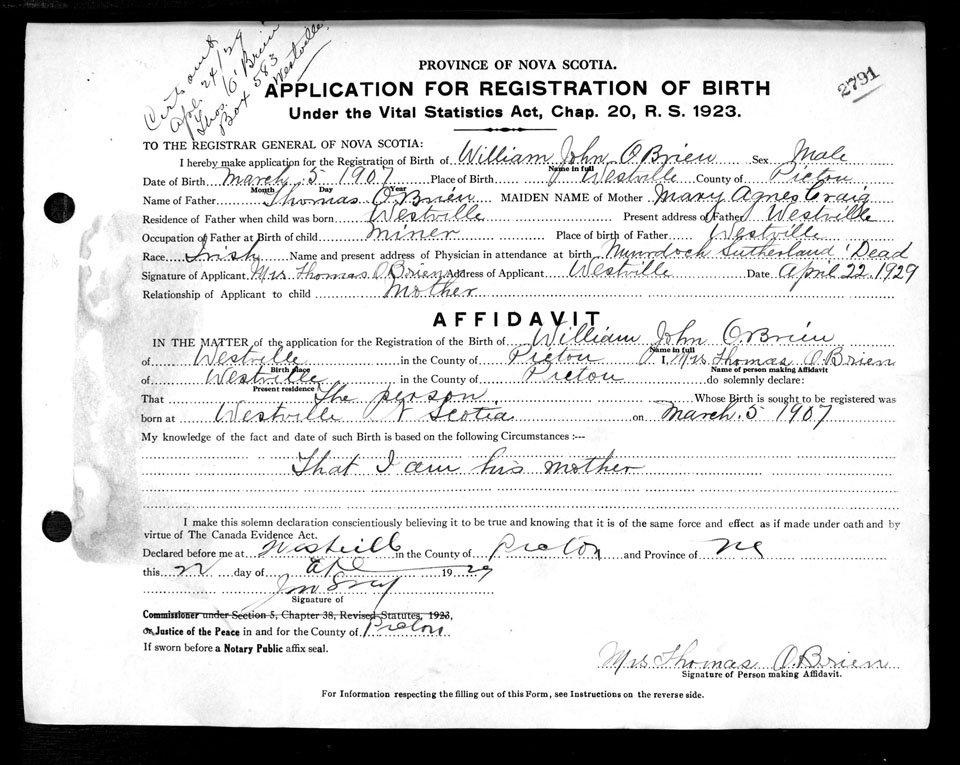 Apr 24/29
Thos. O'Brien
Box 583
Westville
2791
PROVINCE OF NOVA SCOTIA.
APPLICATION FOR REGISTRATION OF BIRTH
Under the Vital Statistics Act, Chap. 20, R. S. 1923.
TO THE REGISTRAR GENERAL OF NOVA SCOTIA:
I hereby make application for the Registration of Birth of William John O'Brien Sex Male
Name in full
Date of Birth March 5 1907 Place of Birth Westville County of Pictou
Month Day Year
Name of Father Thomas O'Brien MAIDEN NAME of Mother Mary Agnes Craig
Residence of Father when child was born Westville Present address of Father Westville
Occupation of Father at Birth of child miner Place of birth of Father Westville
Race Irish Name and present address of Physician in attendance at birth Murdoch Sutherland 'Dead
Signature of Applicant Mrs Thomas O'Brien Address of Applicant Westville Date April 22. 1929
Relationship of Applicant to child Mother
AFFIDAVIT
IN THE MATTER of the application for the Registration of the Birth of William John O'Brien
Name in full
of Westville in the County of Pictou I, Mrs Thomas O'Brien
Birth place Name of person making Affidavit
of Westville in the County of Pictou do solemnly declare:
Present residence
That The person Whose Birth is sought to be registered was
born at Westville N Scotia on March. 5 1907
My knowledge of the fact and date of such Birth is based on the following Circumstances :—
That I am his mother
I make this solemn declaration conscientiously believing it to be true and knowing that it is of the same force and effect as if made under oath and by
virtue of The Canada Evidence Act.
Declared before me at Westville in the County of Pictou and Province of NS
this 22 day of Apl 1929
Signature of
Commissioner under Section 5, Chapter 38, Revised Statutes, 1923,
Or, Justice of the Peace in and for the County of Pictou
If sworn before a Notary Public affix seal.
Mrs Thomas O'Brien
Signature of Person making Affidavit.
For Information respecting the filling out of this Form, see Instructions on the reverse side.